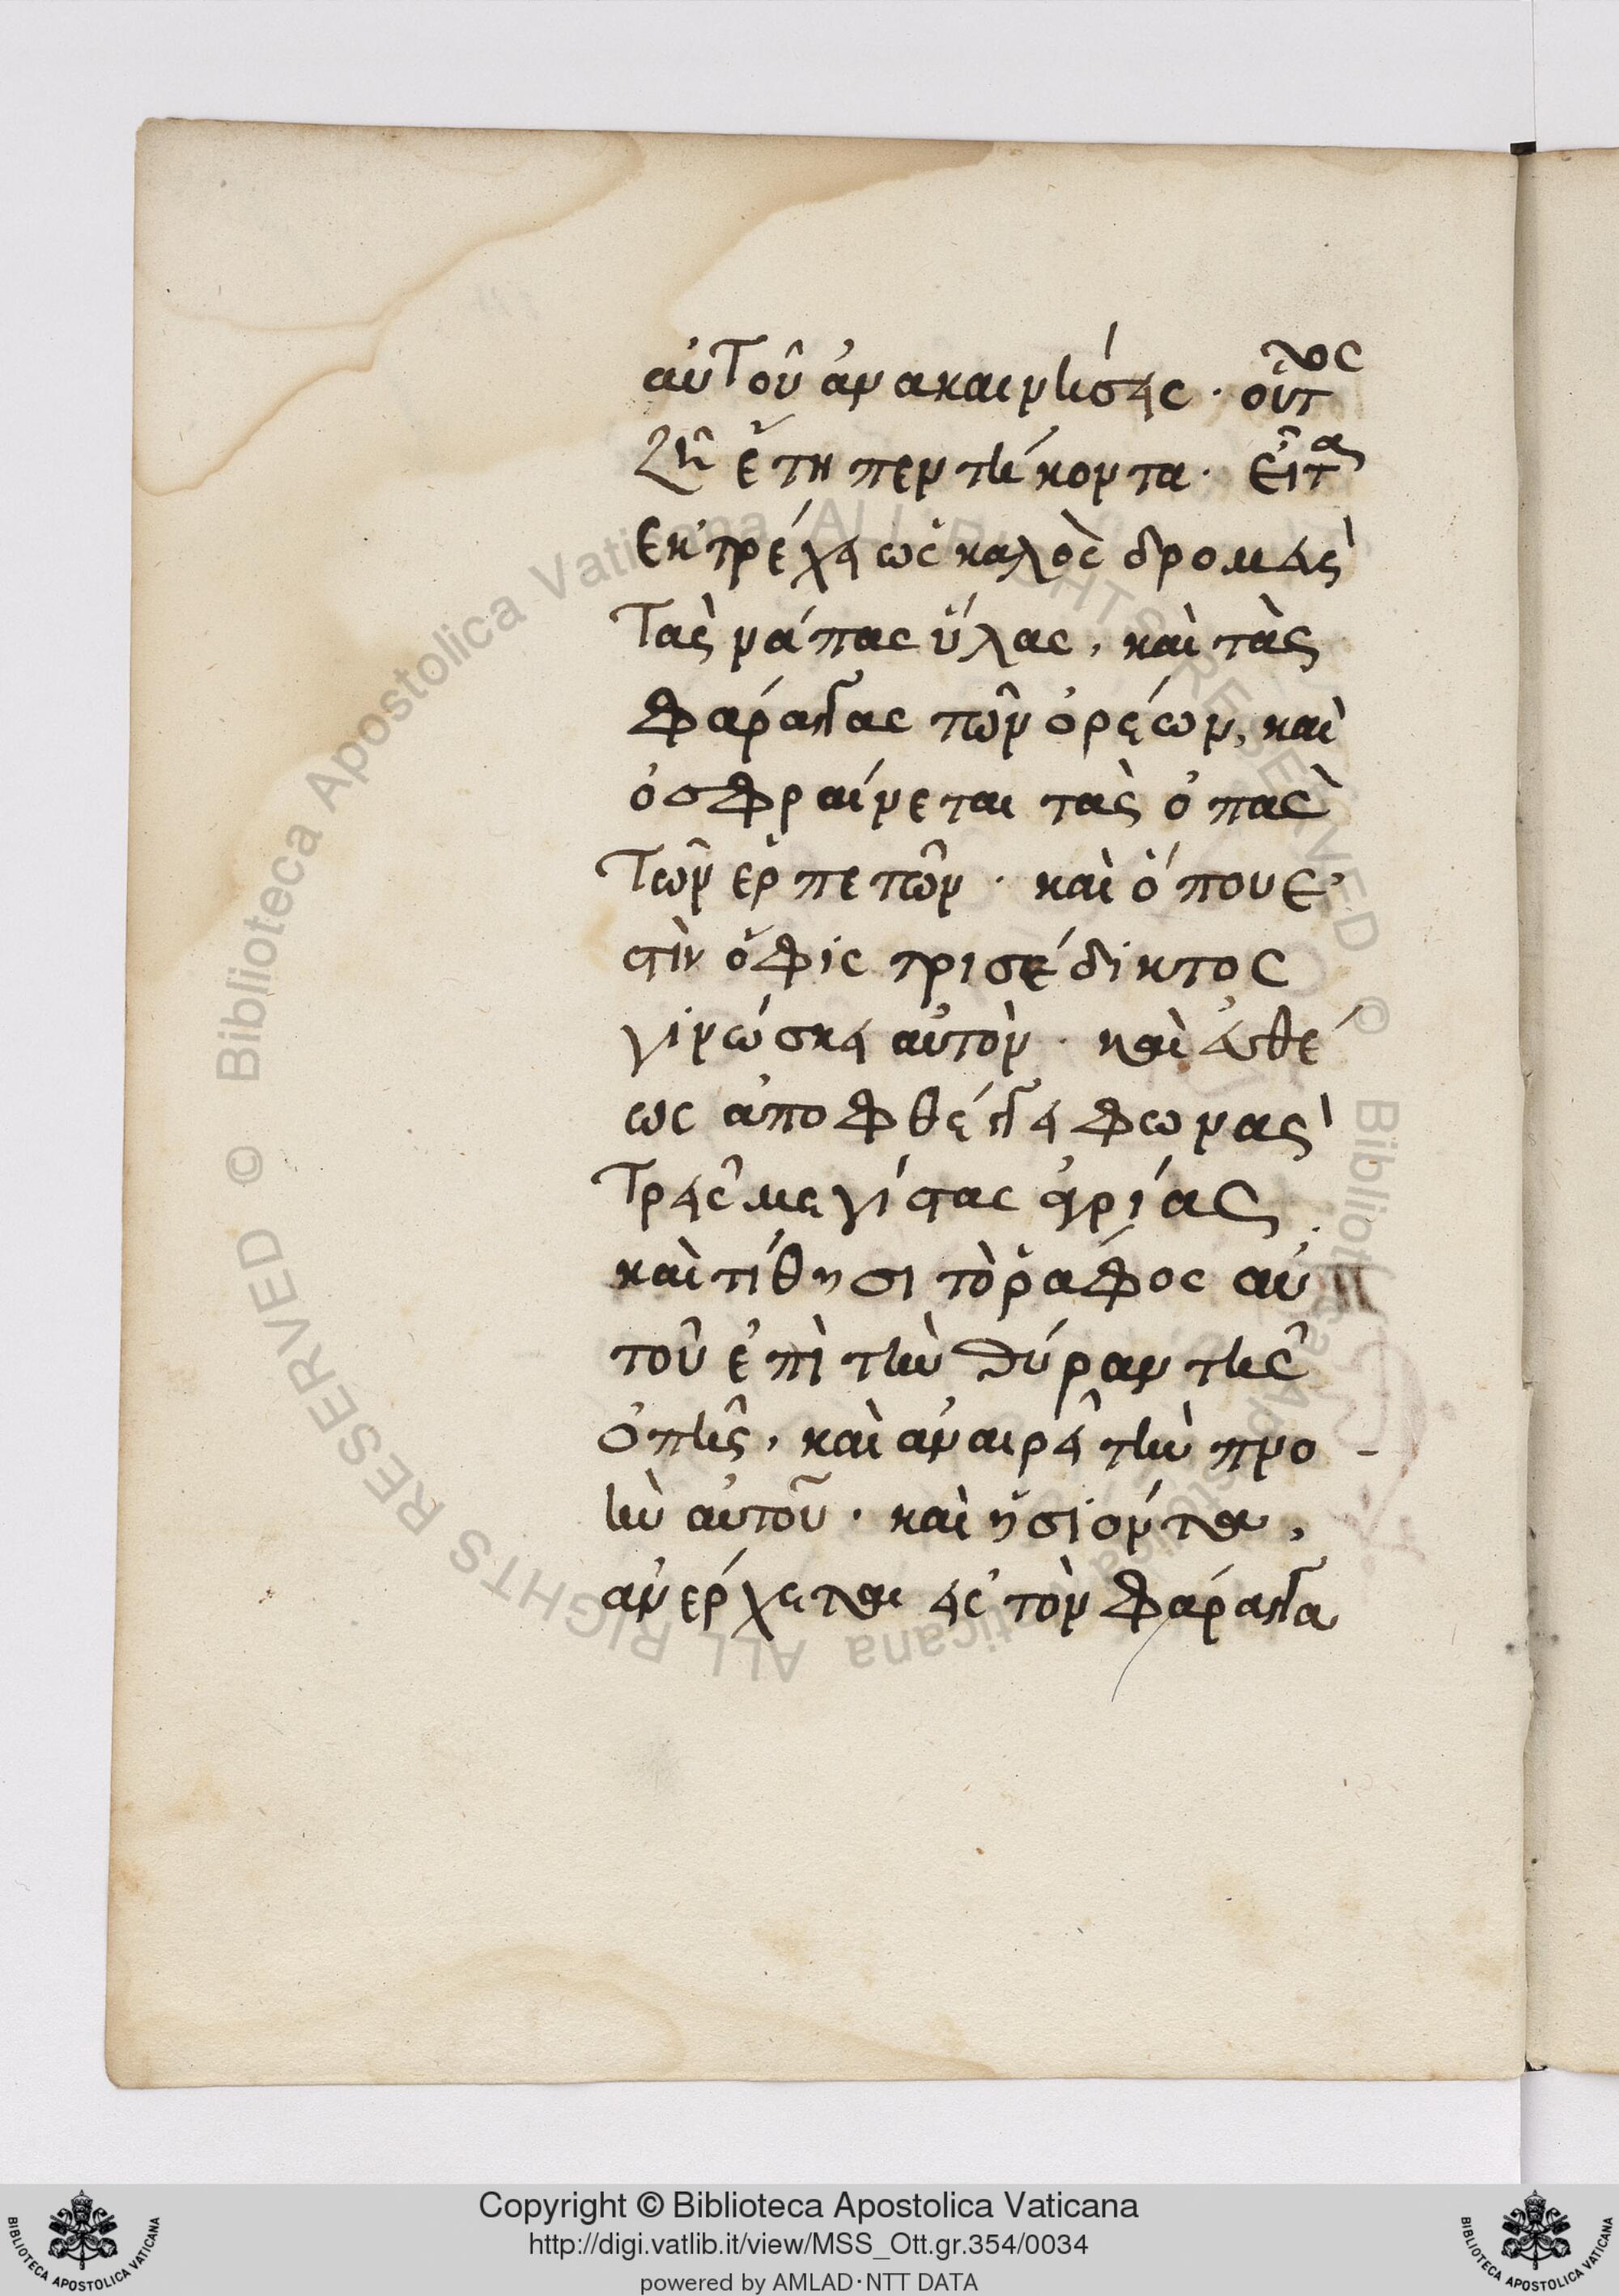 αὐτοῦ ἀνακαινήσεις · οὗτος
ζῆ ἔτη πεντήκοντα · εἶτα
ἐκτρέχει ὡς καλὸς δρομεὺς
τὰς νάπας ὕλας, καὶ τὰς
φάραγγας τῶν ὀρέων, καὶ
ὀσφραίνεται τὰς ὀπὰς
τῶν ἑρπετῶν · καὶ ὅπου ἐ
στὶν ὄφις
γινώσκει αὐτὸν · καὶ εὐθέ
ως ἀποφθέγγει φωνὰς
τρεῖς μεγίστας
καὶ τίθησι τὸ ῥάφος αὐ
τοῦ ἐπὶ τὴν θύραν τῆς
ὀπῆς, καὶ ἀναιρεῖ τὴν πνο
ὴν αὐτοῦ · καὶ
ἀνέρχεται εἰς τὸν φάραγγα
Biblioteca Apostolica Vaticana ALL RIGHTS RESERVED © Biblioteca Apostolica Vaticana ALL RIGHTS RESERVED ©
Copyright © Biblioteca Apostolica Vaticana
http://digi.vatlib.it/view/MSS_Ott.gr.354/0034
powered by AMLAD·NTT DATA
BIBLIOTECA APOSTOLICA VATICANA
BIBLIOTECA APOSTOLICA VATICANA